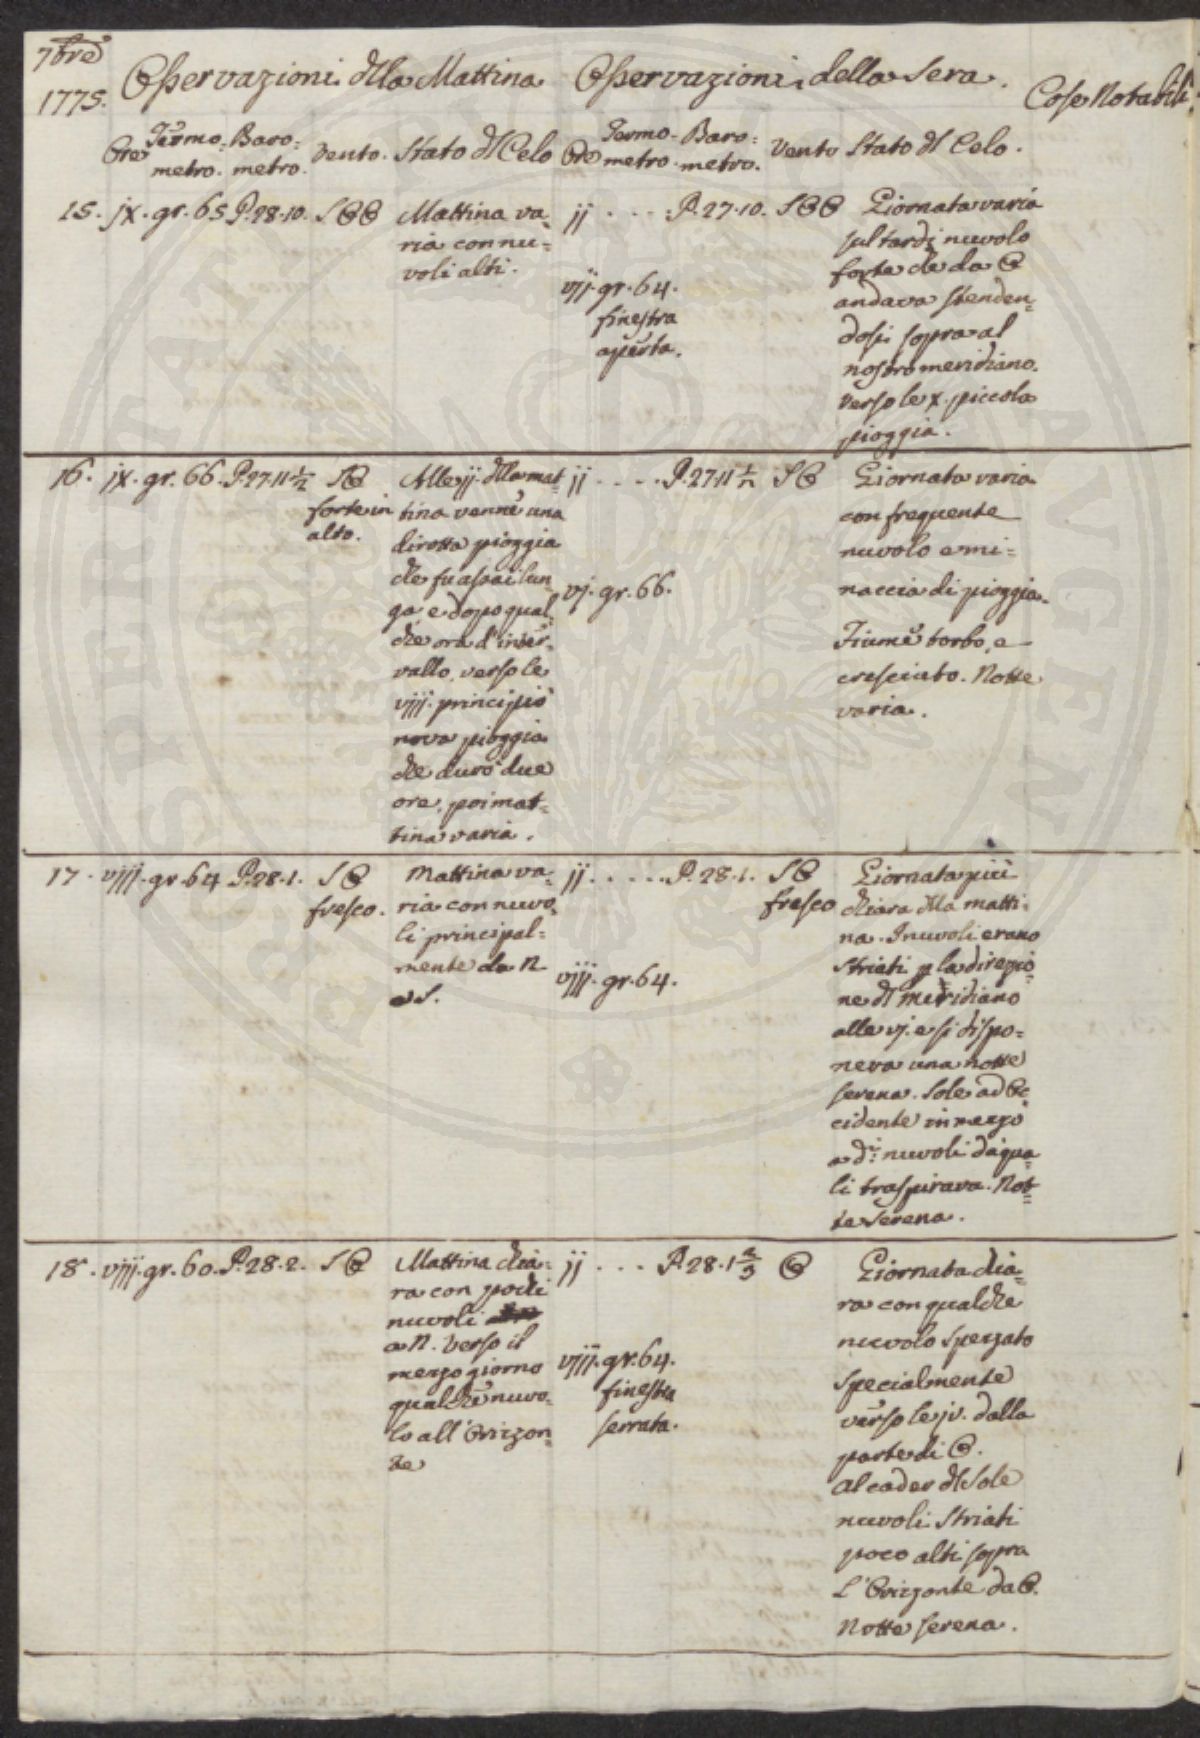 7bre
1775.
Osservazioni dlla Mattina
Osservazioni della Sera.
Cose Notabili.
Ore Termo- Baro= Vento. Stato dl Celo
metro. metro.
Ore Termo- Baro= Vento Stato dl Celo.
metro. metro.
15. jx. gr. 65 P. 28.10. S O O
Mattina va=
ria con nu=
voli alti.
jj . . . P. 27.10. S O O
vjj. gr. 64.
finestra
aperta.
Giornata varia
sul tardi nuvolo
forte che da O
andava stenden=
dosi sopra al
nostro meridiano.
verso le x. piccola
pioggia.
16. jx. gr. 66. P. 27.11 1/2 S O
forte in
alto.
Alle jj. dlla mat=
tina venne una
dirotta pioggia
che fu assai lun=
ga e dopo qual=
che ora d'inter=
vallo, verso le
vjjj. principiò
nova pioggia
che durò due
ore, poi mat=
tina varia.
jj . . . . P. 27.11 S O
vj. gr. 66.
Giornata varia
con frequente
nuvolo e mi=
naccia di pioggia.
Fiume torbo, e
cresciuto. Notte
varia.
17. vjjj. gr. 64 P. 28.1. S O
fresco.
Mattina va=
ria con nuvo=
li principal=
mente da N
a S.
jj . . . . . P. 28.1. S O
fresco
vjjj. gr. 64.
Giornata più
chiara dlla matti=
na. I nuvoli erano
striati p la direzio=
ne dl meridiano
alle vj. e si dispo=
neva una notte
serena. Sole ad Oc=
cidente in mezzo
a di nuvoli da' qua=
li traspirava. Not=
te serena.
18. vjjj. gr. 60. P. 28.2. S O
Mattina chia=
ra con pochi
nuvoli
a N. verso il
mezzo giorno
qualche nuvo=
lo all'Orizzon=
te
jj . . . P. 28.1 2/3 O
vjjj. gr. 64.
finestra
serrata.
Giornata chia=
ra con qualche
nuvolo spezzato
specialmente
verso le jv. dalla
parte di O.
Al cader dl Sole
nuvoli striati
poco alti sopra
l'Orizzonte da O.
Notte serena.